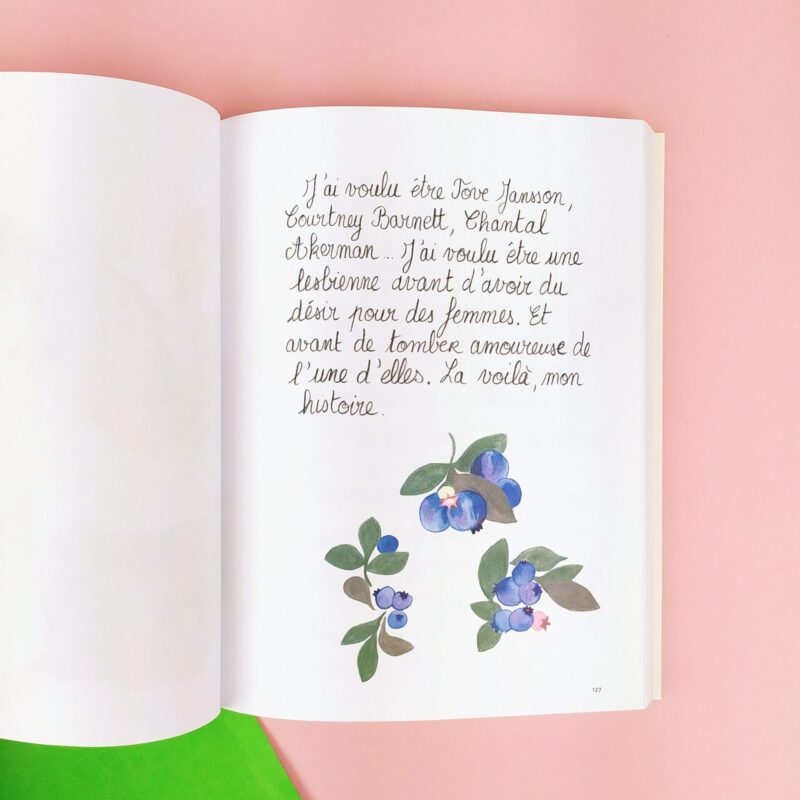 J'ai voulu être Tove Jansson,
Courtney Barnett, Chantal
Akerman... J'ai voulu être une
lesbienne avant d'avoir du
désir pour des femmes. Et
avant de tomber amoureuse de
l'une d'elles. La voilà, mon
histoire.
127